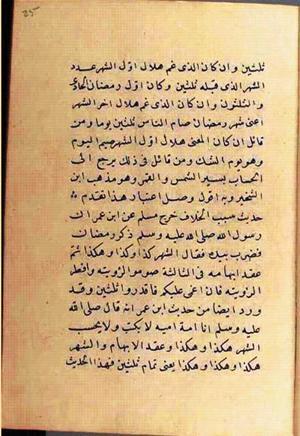 ثلثين وان كان الذى غم هلال اول الشهر عدد
الشهر الذى قبله ثلثين وكان اول رمضان الحادى
والثلثون وان كان الذى غم هلال اخر الشهر
اعنى شهر رمضان صام الناس ثلثين يوما ومن
قائل ان كان المغمى هلال اول الشهر صيم اليوم
وهو يوم الشك ومن قائل فى ذلك يرجع الى
الحساب بسير الشمس والقمر وهو مذهب ابن
الشخير وبه اقول وصل اعتبار هذا تقدم
حديث سبب الخلاف خرج مسلم عن ابن عمر ان
رسول الله صلى الله عليه وسلم ذكر رمضان
فضرب بيده فقال الشهر كذا وكذا وهكذا ثم
عقد ابهامه فى الثالثة صوموا لرؤيته وافطروا
لرؤيته فان اغمى عليكم فاقدروا ثلثين وقد
ورد ايضا من حديث ابن عمر انه قال صلى الله
عليه وسلم انا امة امية لا نكتب ولا نحسب
الشهر هكذا وهكذا وهكذا وعقد الابهام والشهر
هكذا وهكذا وهكذا يعنى تمام ثلثين فهذا الحديث